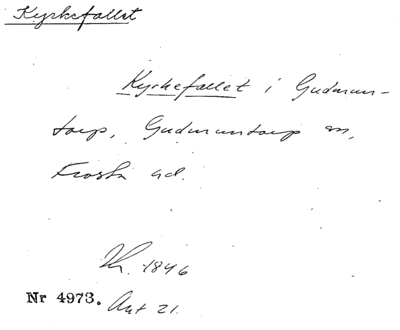 Kyrkefallet
Kyrkefallet i Gudmun-
torp, Gudmuntorp sn,
Frosta hd.
Kr. 1846
Nr 4973. Akt 21.